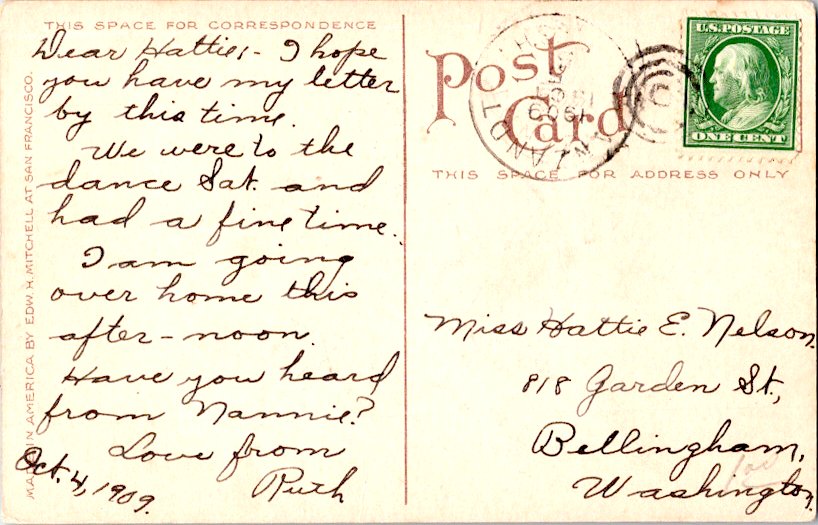 THIS SPACE FOR CORRESPONDENCE
Dear Hattie;- I hope
you have my letter
by this time.
We were to the
dance Sat. and
had a fine time.
I am going
over home this
after-noon.
Have you heard
from Nannie?
Love from
Ruth
Oct. 4, 1909.
MADE IN AMERICA BY EDW. H. MITCHELL AT SAN FRANCISCO.
Post
Card
THIS SPACE FOR ADDRESS ONLY
1909
U.S. POSTAGE
ONE CENT
Miss Hattie E. Nelson.
818 Garden St.,
Bellingham,
Washington.